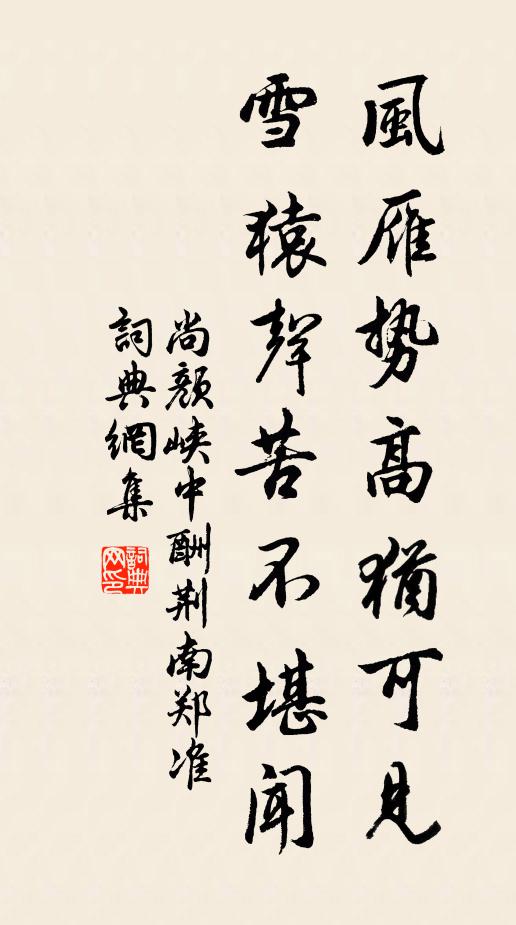 風雁勢高猶可見
雪猿聲苦不堪聞
尚顏峽中酬荆南郑准
詞典網集
詞典网印